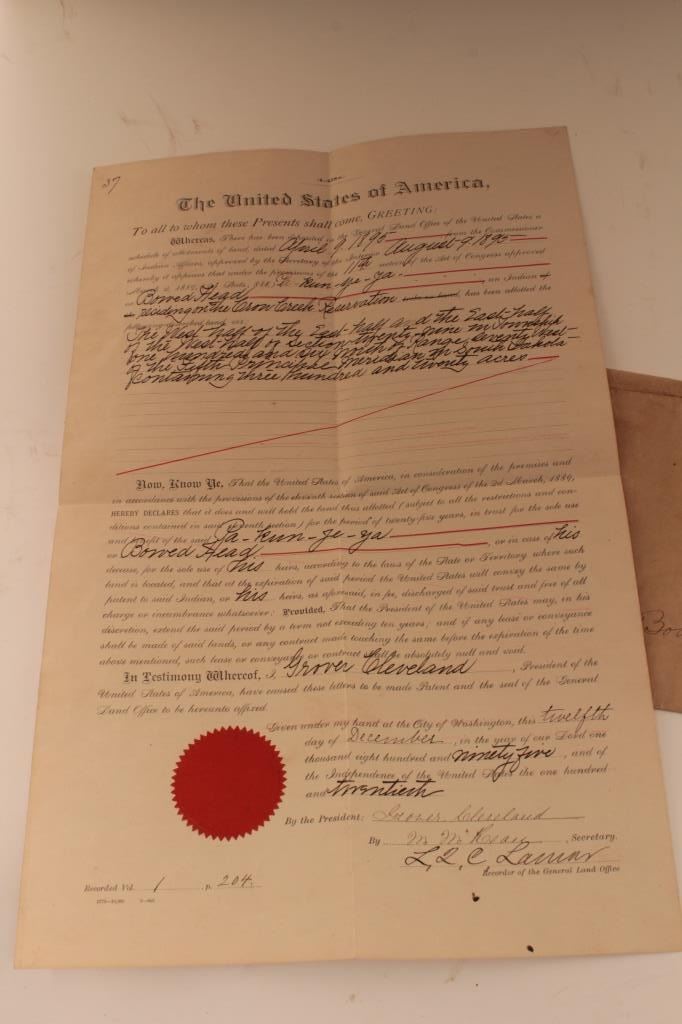 37
The United States of America,
To all to whom these Presents shall come, GREETING:
Whereas, There has been deposited in the General Land Office of the United States a
schedule of allotments of land, dated April 9, 1895 from the Commissioner
of Indian Affairs, approved by the Secretary of the Interior August 9, 1895
whereby it appears that under the provisions of the 11th section of the Act of Congress approved
March 2, 1889, Stats. 888, kun-ye-ya an Indian of
or Bowed Head
residing on the Crow Creek Reservation has been allotted the
following described land, viz:
The West half of the East half and the East half
of the West half of Section twenty nine in Township
one hundred and six North of Range seventy west
of the Fifth Principal Meridian in South Dakota
containing three hundred and twenty acres
Now, Know Ye, That the United States of America, in consideration of the premises and
in accordance with the provisions of the eleventh section of said Act of Congress of the 2d March, 1889,
HEREBY DECLARES that it does and will hold the land thus allotted (subject to all the restrictions and con-
ditions contained in said eleventh section) for the period of twenty-five years, in trust for the sole use
and benefit of the said kun-ye-ya
or Bowed Head, or in case of his
decease, for the sole use of his heirs, according to the laws of the State or Territory where such
land is located, and that at the expiration of said period the United States will convey the same by
patent to said Indian, or his heirs, as aforesaid, in fee, discharged of said trust and free of all
charge or incumbrance whatsoever: Provided, That the President of the United States may, in his
discretion, extend the said period by a term not exceeding ten years; and if any lease or conveyance
shall be made of said lands, or any contract made touching the same before the expiration of the time
above mentioned, such lease or conveyance or contract shall be absolutely null and void.
In Testimony Whereof, I, Grover Cleveland, President of the
United States of America, have caused these letters to be made Patent and the seal of the General
Land Office to be hereunto affixed.
Given under my hand at the City of Washington, this twelfth
day of December, in the year of our Lord one
thousand eight hundred and ninety five, and of
the Independence of the United States the one hundred
and twentieth
By the President: Grover Cleveland
By M. McKean, Secretary.
L. Q. C. Lamar
Recorder of the General Land Office
Recorded Vol. 1 p. 204.
Bow